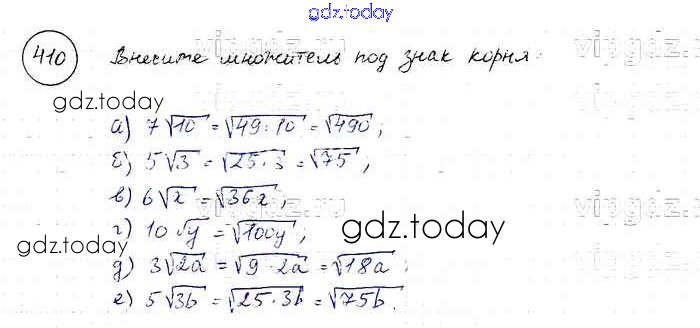 gdz.today
410 Внесите множитель под знак корня:
vipgdz.ru
gdz.today
а) 7√10 = √49·10 = √490;
б) 5√3 = √25·3 = √75;
в) 6√x = √36x;
vipgdz.ru
г) 10√y = √100y;
gdz.today
gdz.today
д) 3√2a = √9·2a = √18a;
е) 5√3b = √25·3b = √75b.